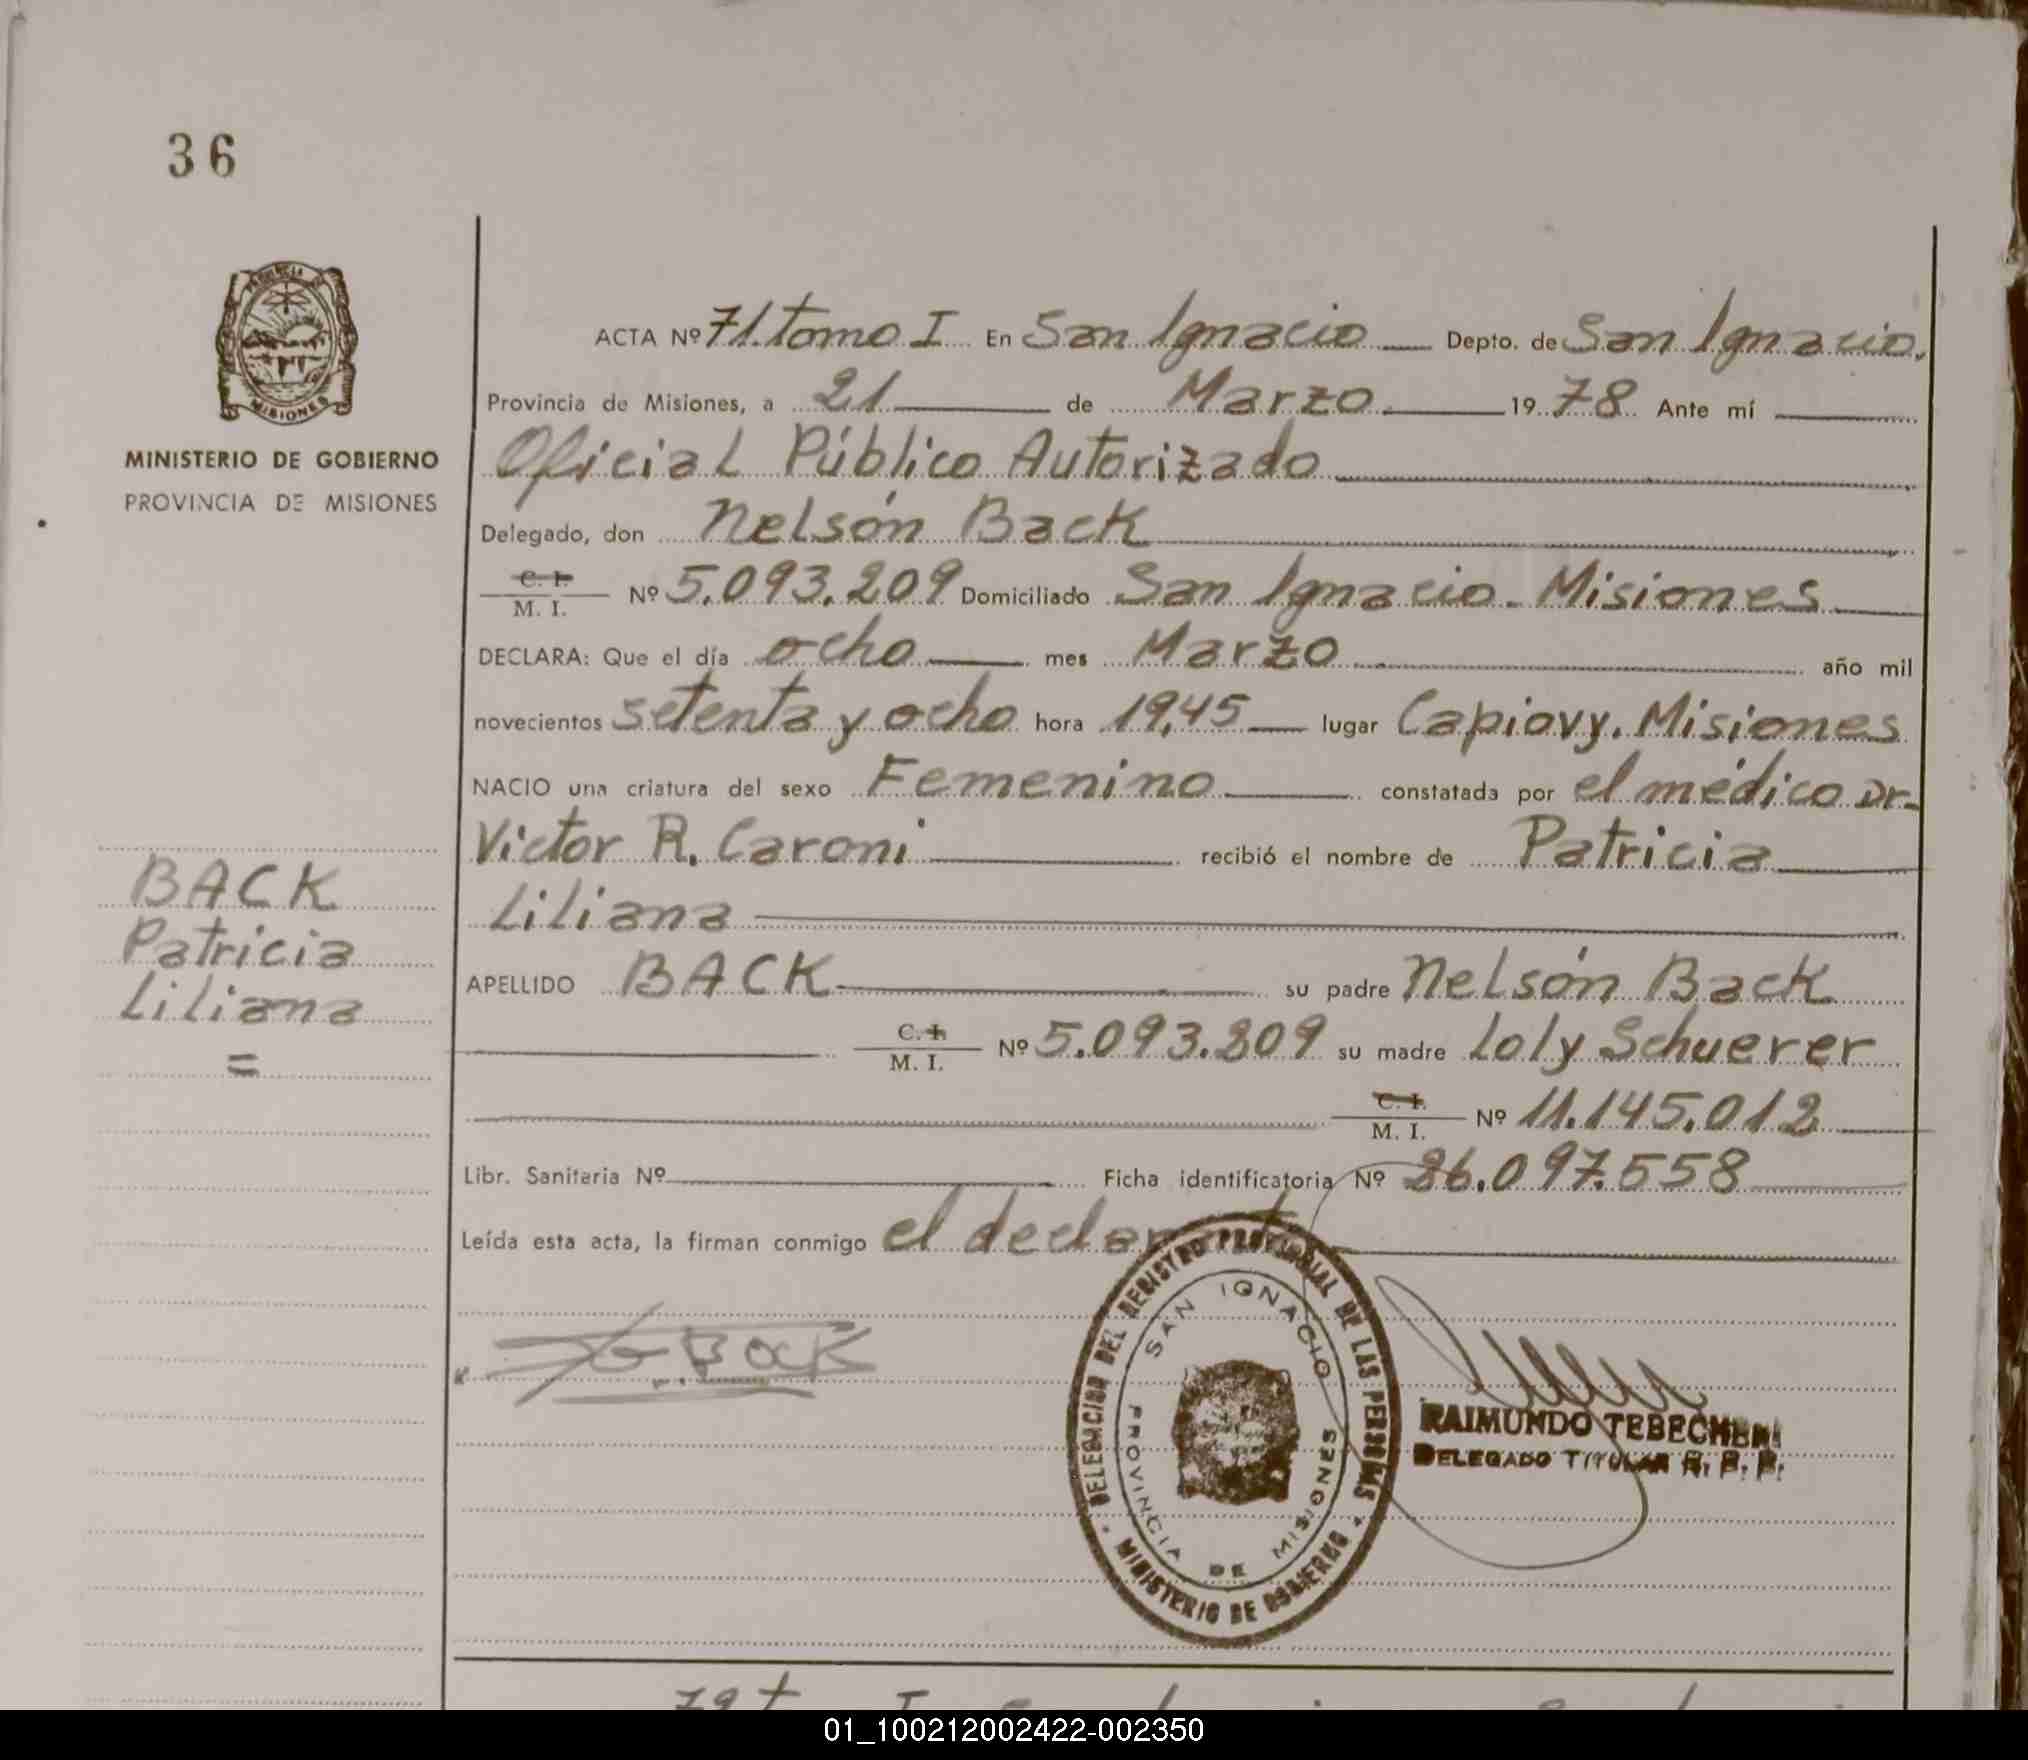 36
PROVINCIA DE
MISIONES
MINISTERIO DE GOBIERNO
PROVINCIA DE MISIONES
BACK
Patricia
Liliana
=
ACTA Nº 71. tomo I En San Ignacio Depto. de San Ignacio.
Provincia de Misiones, a 21 de Marzo 1978 Ante mí
Oficial Público Autorizado
Delegado, don Nelsón Back
C. I.
M. I. Nº 5.093.209 Domiciliado San Ignacio - Misiones
DECLARA: Que el día ocho mes Marzo año mil
novecientos setenta y ocho hora 19,45 lugar Capiovy. Misiones
NACIO una criatura del sexo Femenino constatada por el médico Dr.
Victor R. Caroni recibió el nombre de Patricia
Liliana
APELLIDO BACK su padre Nelsón Back
C. I.
M. I. Nº 5.093.209 su madre Loly Schuerer
C. I.
M. I. Nº 11.145.012
Libr. Sanitaria Nº Ficha identificatoria Nº 26.097.558
Leída esta acta, la firman conmigo el declarante
Back
DELEGACION DEL REGISTRO PROVINCIAL DE LAS PERSONAS
SAN IGNACIO
PROVINCIA DE MISIONES
MINISTERIO DE GOBIERNO
RAIMUNDO TEBECHERI
DELEGADO TITULAR R. P. P.
01_100212002422-002350